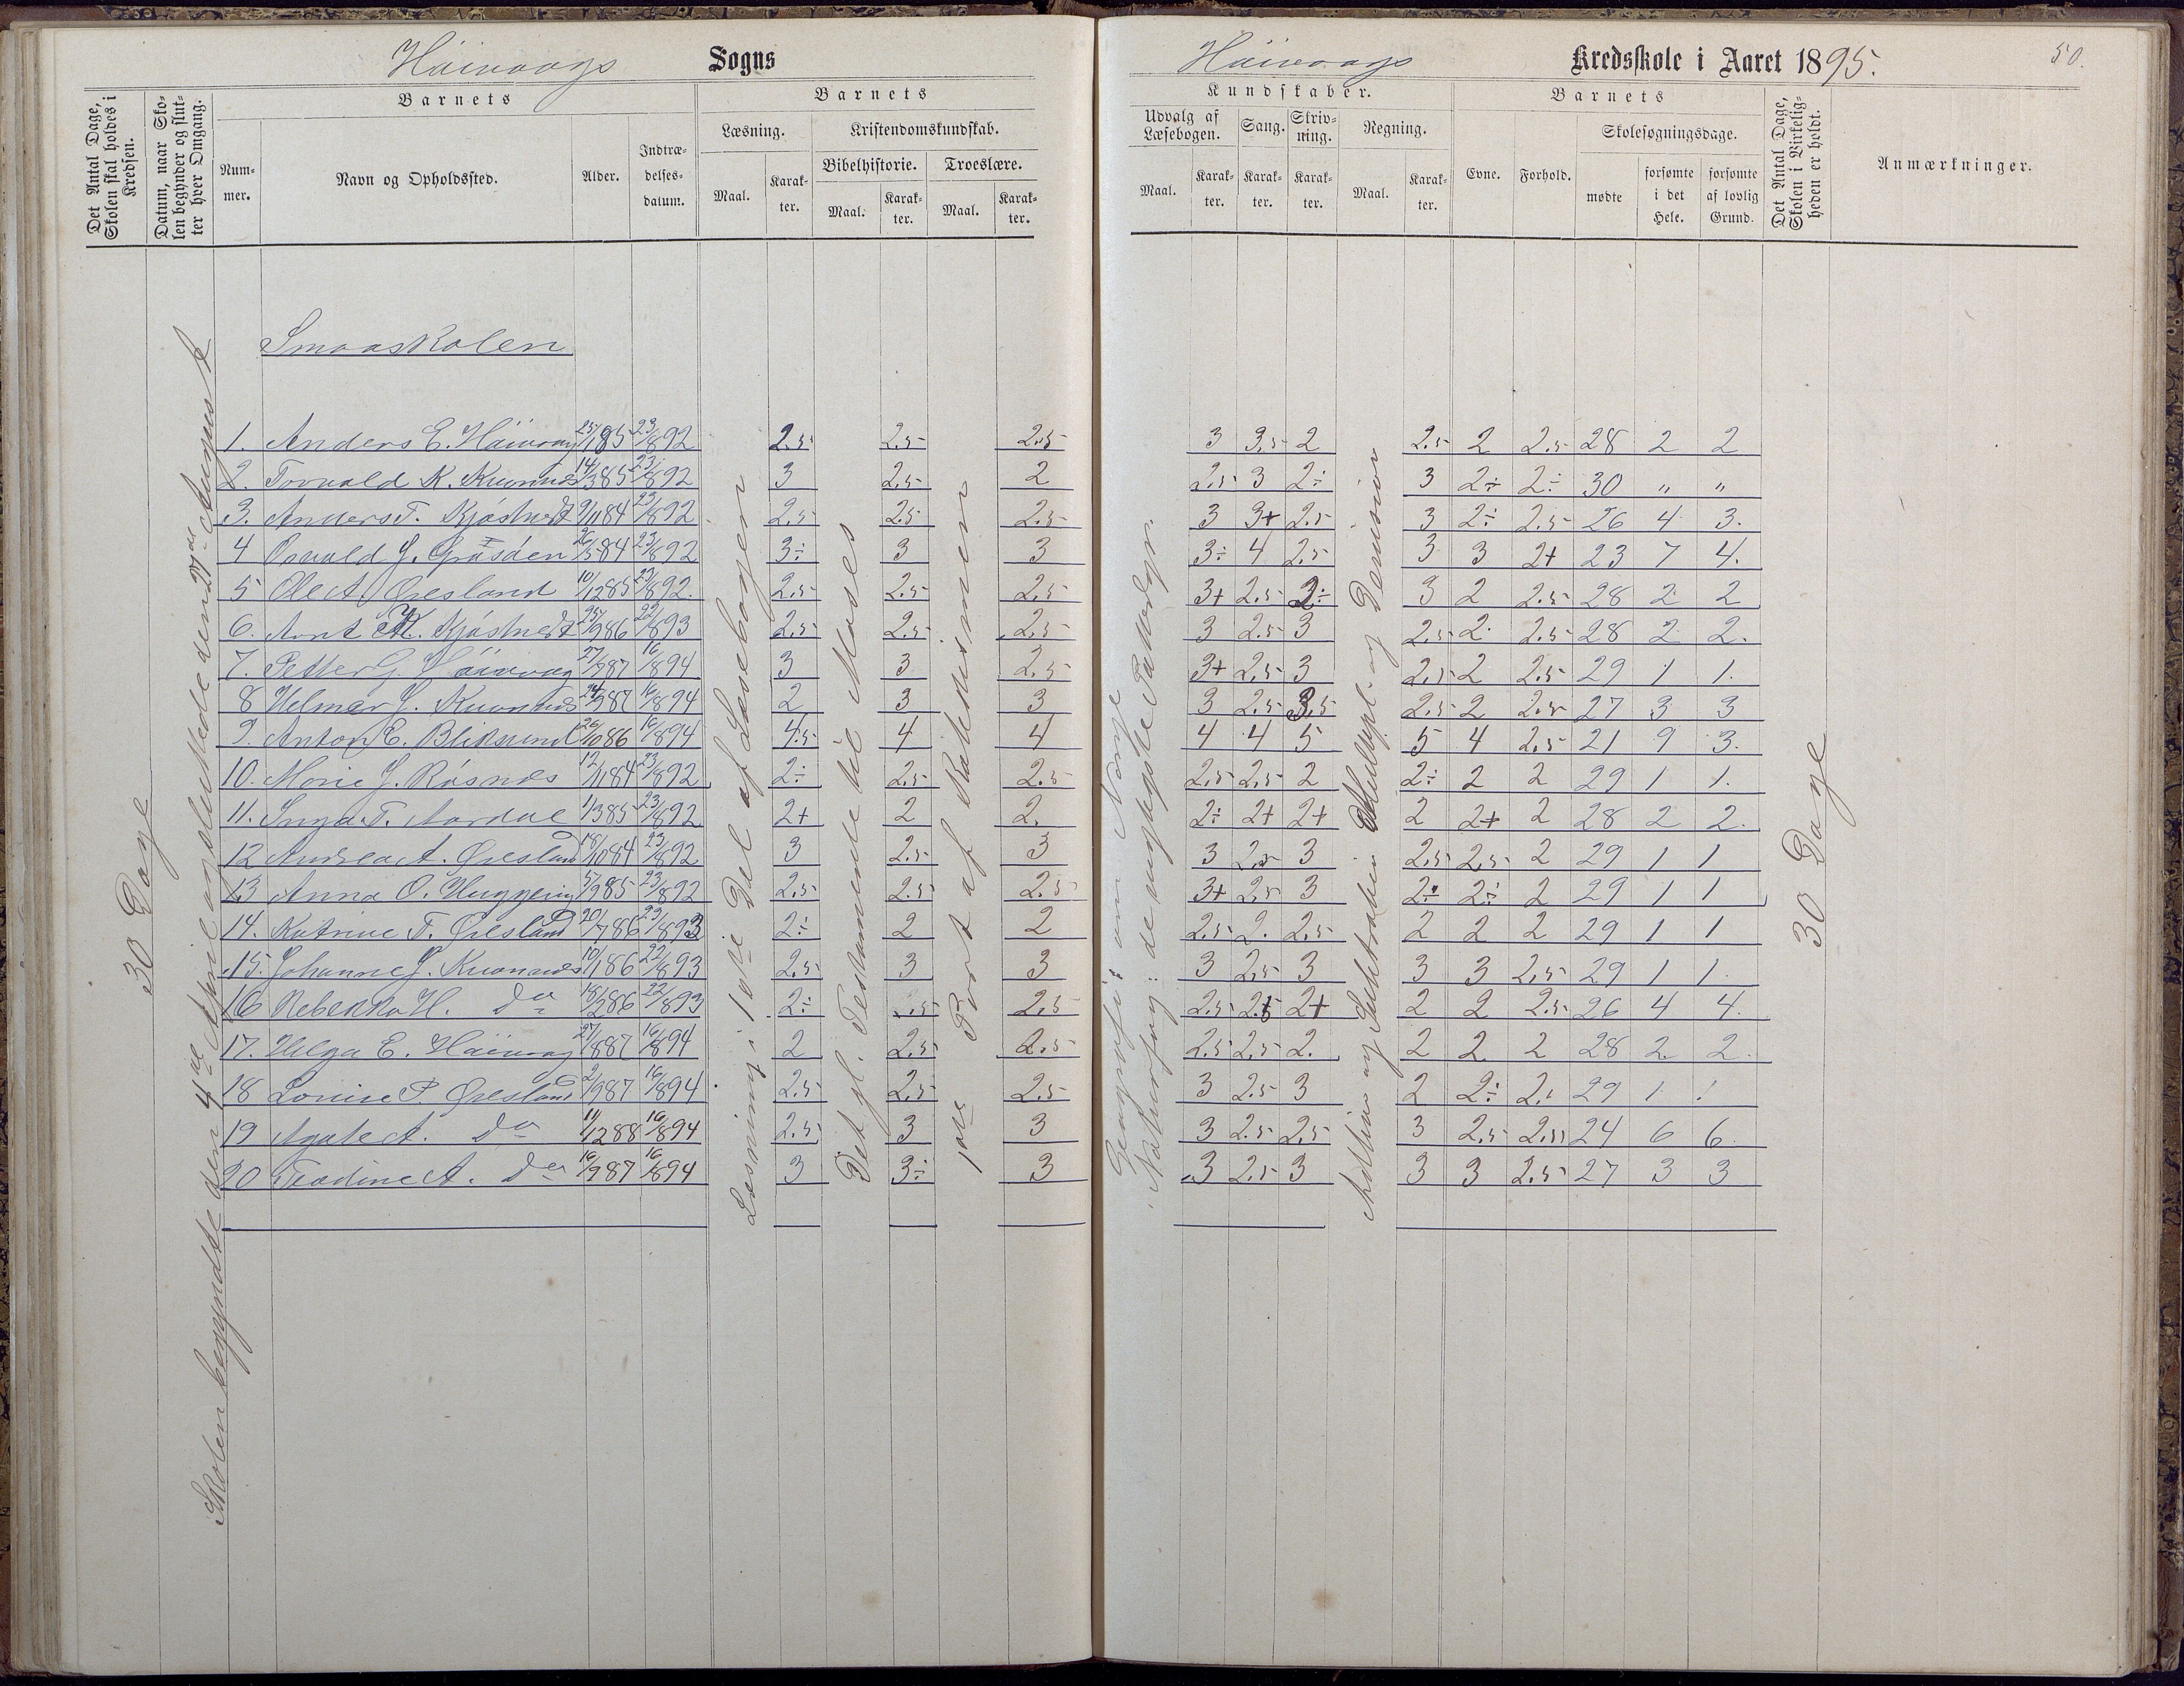 Häivaags Sogns
Det Antal Dage, Skolen skal holdes i Kredsen.
Datum, naar Skolen begynder og slutter hver Omgang.
Barnets
Nummer.
Navn og Opholdssted.
Alder.
Indtrædelsesdatum.
Barnets
Læsning.
Kristendomskundskab.
Bibelhistorie.
Troeslære.
Maal. Karakter. Maal. Karakter. Maal. Karakter.
30 Dage
Skolen begyndte den 4de April og sluttede den
Smaaskolen
Læsning i 1ste Del af Læsebogen
Det gl. Testamente til Moses
1ste Part af Katekismen
1. Anders E. Häivaag 25/1 85 23/8 92 2.5 2.5 2.5
2. Torvald K. Kvannes 14/3 85 23/8 92 3 2.5 2
3. Anders T. 9/11 84 23/8 92 2.5 2.5 2.5
4 Osvald J. Gråsåen 26/5 84 23/8 92 3÷ 3 3
5 Ole A. Øresland 10/12 85 23/8 92. 2.5 2.5 2.5
6. Arnt K. 25/9 86 22/8 93 2.5 2.5 2.5
7. Petter G. Häivaag 27/7 87 16/8 94 3 3 2.5
8 Helmer J. Kvannes 24/3 87 16/8 94 2 3 3
9. Anton E. Bliksund 26/10 86 16/8 94 4.5 4 4
10. Marie J. Råsnes 12/11 84 23/8 92 2÷ 2.5 2.5
11. Inga T. Aardal 1/3 85 23/8 92 2+ 2 2.
12 Andrea A. Øresland 18/10 84 23/8 92 3 2.5 3
13 Anna O. 5/9 85 23/8 92 2.5 2.5 2.5
14. Katrine T. Øresland 20/7 86 23/8 93 2÷ 2 2
15. Johanne J. Kvannes 10/1 86 22/8 93 2.5 3 3
16 Rebekka H. Do 18/2 86 22/8 93 2÷ .5 2.5
17. Helga E. Häivaag 27/8 87 16/8 94 2 2.5 2.5
18 Lovise P. Øresland 2/9 87 16/8 94 2.5 2.5 2.5
19 Agate A. Do 11/12 88 16/8 94 2.5 3 3
20 Teodine A. Do 16/9 87 16/8 94 3 3÷ 3
Häivaags Kredsskole i Aaret 1895. 50.
Kundskaber.
Udvalg af Læsebogen.
Sang.
Skrivning.
Regning.
Maal. Karakter. Karakter. Karakter. Maal. Karakter.
Barnets
Evne. Forhold.
Skolesøgningsdage.
mødte
forsømte i det Hele.
forsømte af lovlig Grund.
Det Antal Dage, Skolen i Virkeligheden er holdt.
Anmærkninger.
Geografi: om Norge
Naturfag: de
Adition og Subtraktion Multipl. og Division
30 Dage
3 3.5 2 2.5 2 2.5 28 2 2
2.5 3 2÷ 3 2÷ 2÷ 30 " "
3 3+ 2.5 3 2÷ 2.5 26 4 3.
3÷ 4 2.5 3 3 2+ 23 7 4.
3+ 2.5 2÷ 3 2 2.5 28 2 2
3 2.5 3 2.5 2 2.5 28 2 2.
3+ 2.5 3 2.5 2 2.5 29 1 1.
3 2.5 3.5 2.5 2 2.5 27 3 3
4 4 5 5 4 2.5 21 9 3.
2.5 2.5 2 2÷ 2 2 29 1 1.
2÷ 2+ 2+ 2 2+ 2 28 2 2.
3 2.5 3 2.5 2.5 2 29 1 1
3+ 2.5 3 2÷ 2÷ 2 29 1 1
2.5 2. 2.5 2 2 2 29 1 1
3 2.5 3 3 3 2.5 29 1 1.
2.5 2.5 2+ 2 2 2.5 26 4 4.
2.5 2.5 2. 2 2 2 28 2 2.
3 2.5 3 2 2÷ 2. 29 1 1
3 2.5 2.5 3 2.5 2.5 24 6 6.
3 2.5 3 3 3 2.5 27 3 3